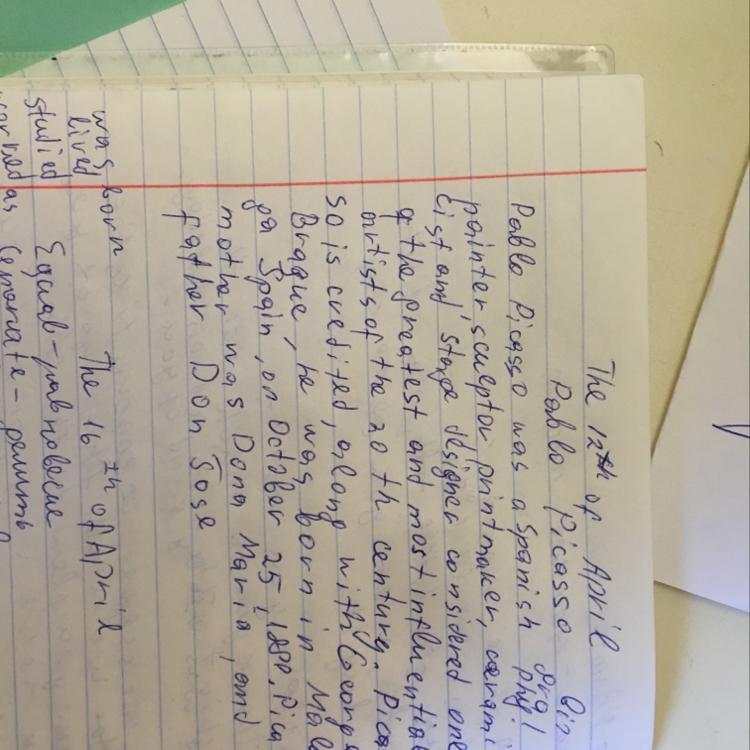 The 12th of April
Pablo Picasso
Pablo Picasso was a Spanish
painter, sculptor, printmaker, cerami
cist and stage designer considered one
of the greatest and most influential
artists of the 20 th century. Pica
so is credited, along with George
Braque, he was born in Mala
ga Spain, on October 25, Pica
mother was Dona Maria, and
father Don Jose
The 16 th of April
was born
lived
studied Equab-равновесие
worked as Separate-решить